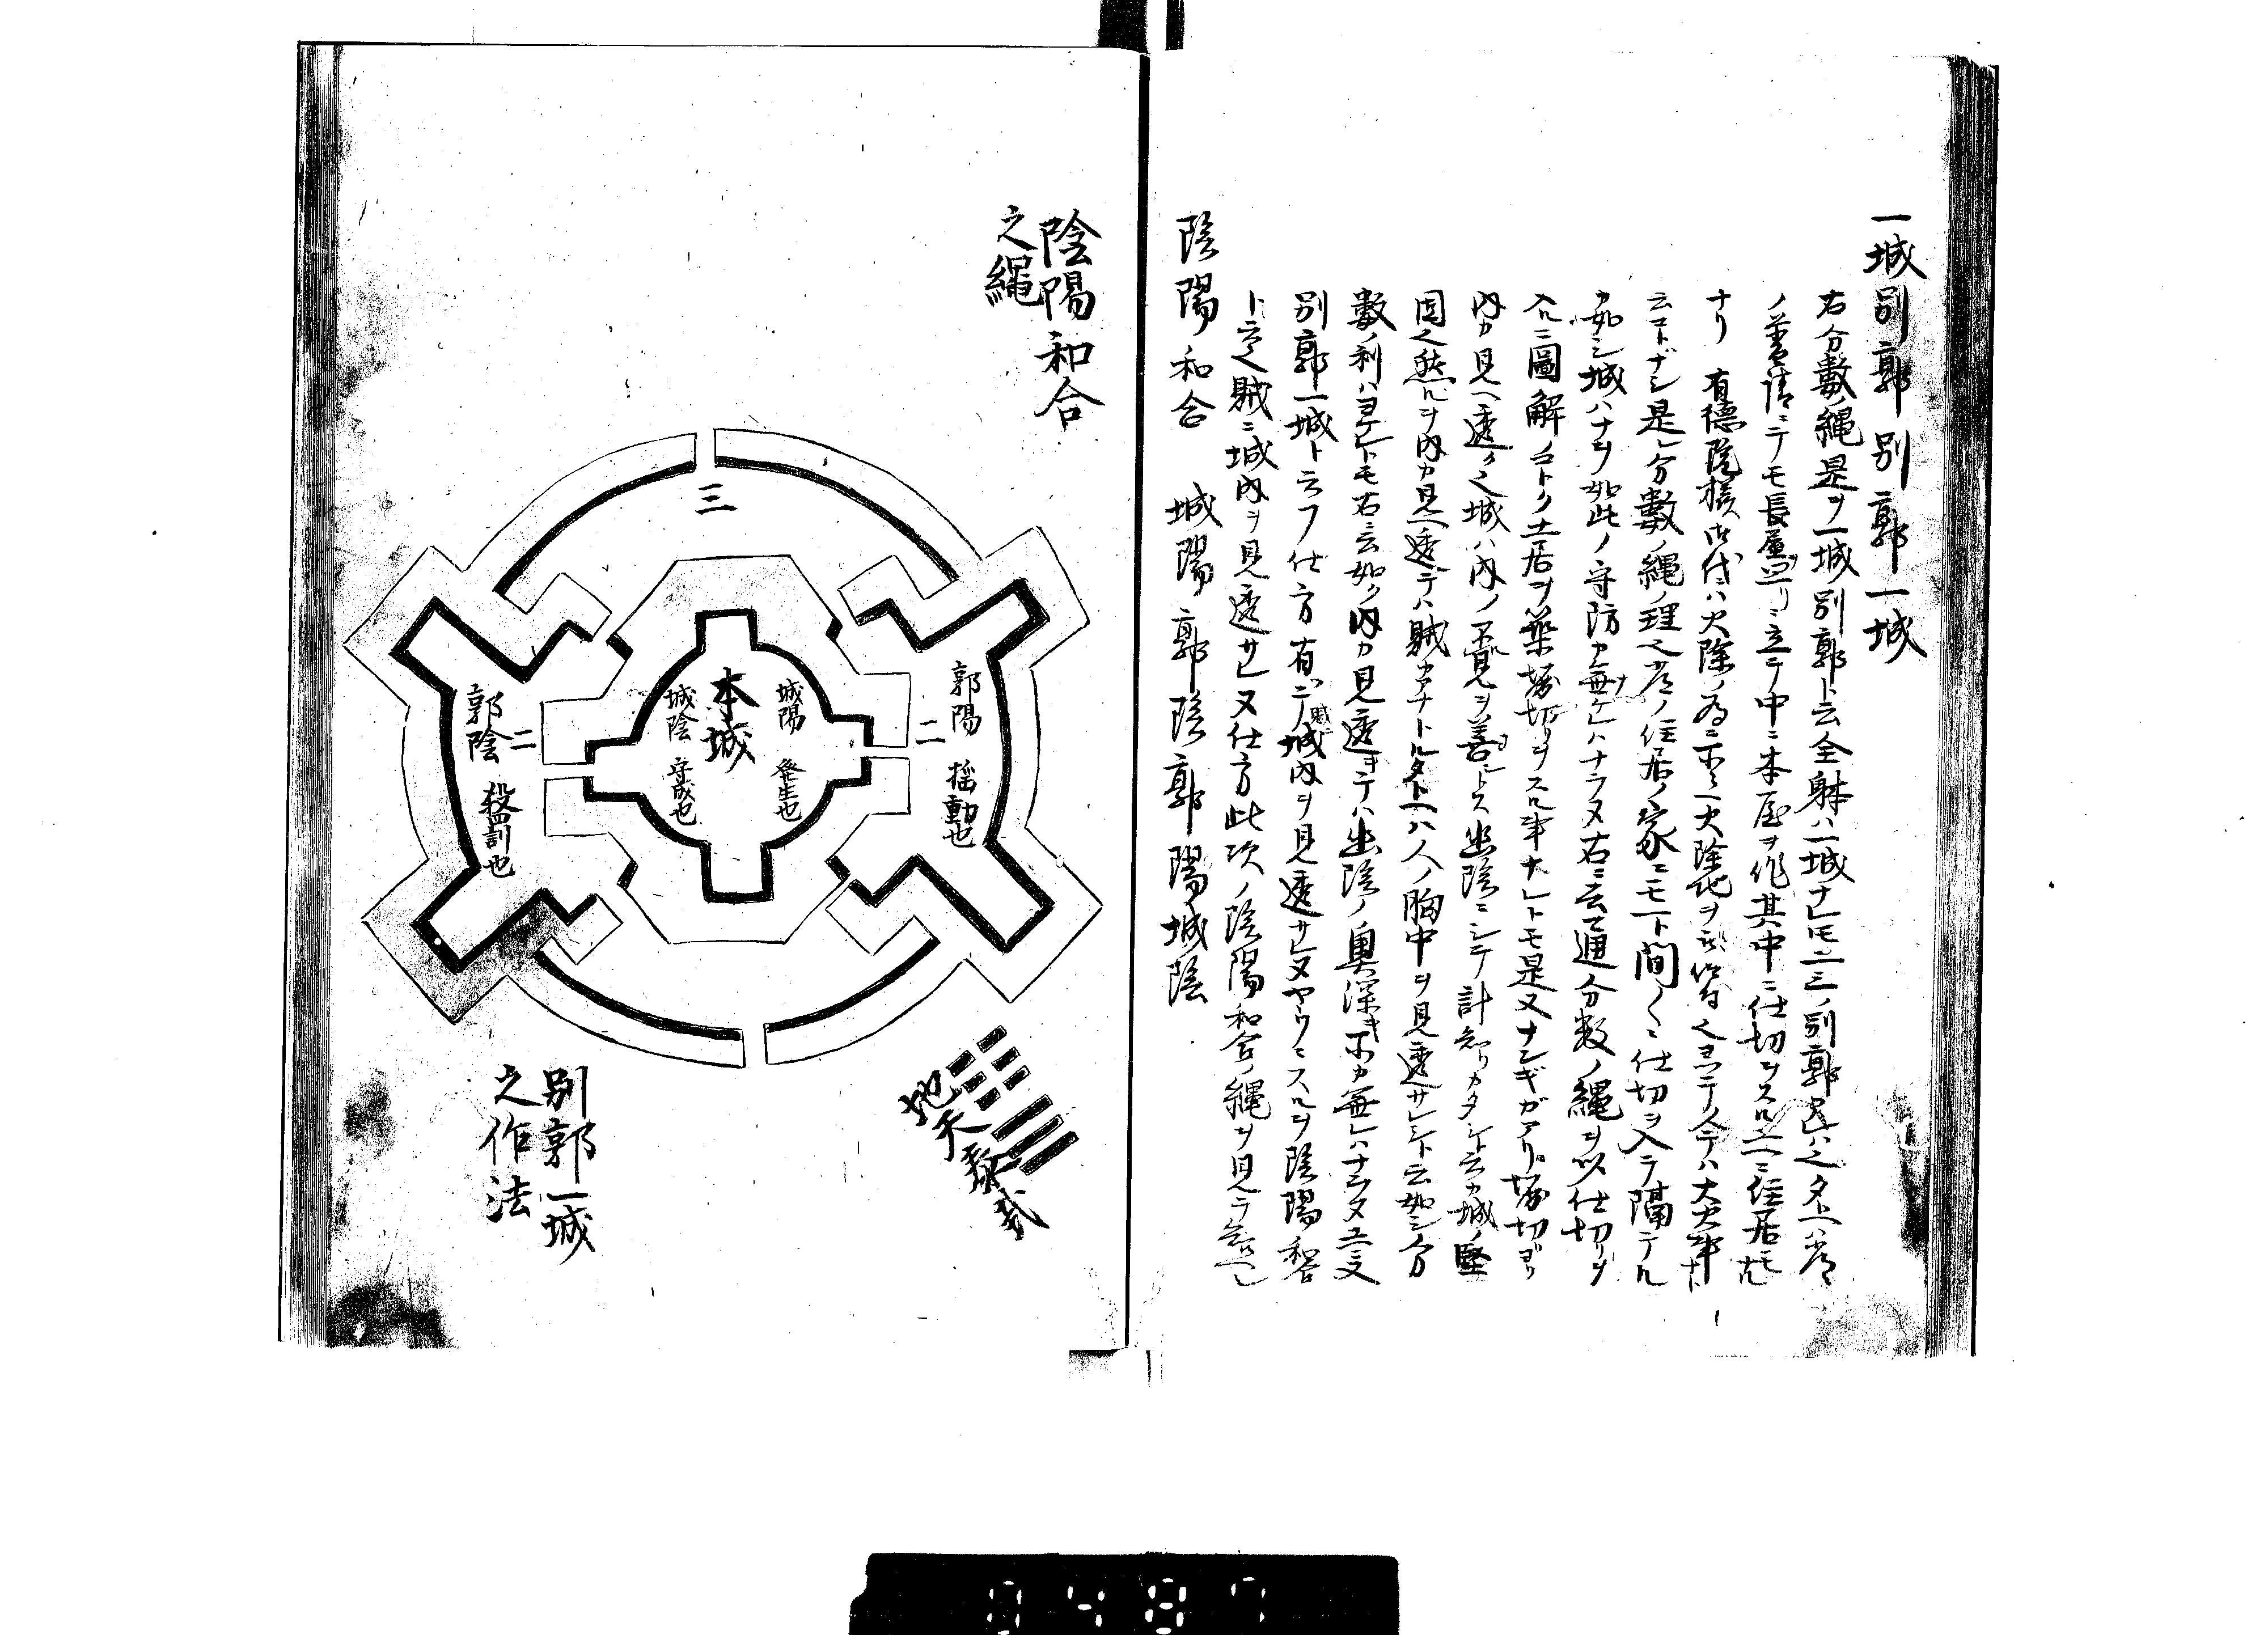 一城別郭 別郭一城
右分數ノ縄是ヲ一城別郭ト云全躰ハ一城ナレ𪜈二三ノ別郭
ノ普請ニテモ長屋造リニ立テ中ニ本屋ヲ作其中ニ仕切ヲスル
ナリ 有德院樣御代ハ火除ノ為ニ
云コトナシ是レ分數ノ縄ノ理也常ノ住居ノ家ニモ一ト間〳〵ニ仕切ヲ入テ隔テル
カ如シ城ハナヲ如此ノ守防カ無ケレハナラヌ右ニ云通分數ノ縄ヲ以仕切リヲ
入ルニ圖解ノコトク土居ヲ築堀切リヲスル事ナレトモ是又ナンギガアリ堀切ヨリ
内カ見ヘ透ク也城ハ内ノ不見ヲ善トス幽陰ニシテ計知リカタシト云カ城ノ堅
固也然ルヲ内カ見ヘ透テハ賊カアナトル
人ノ胸中ヲ見透サレシト云如シ分
數ノ利ハヨケレトモ右ニ云如ク内カ見透キテハ幽陰ノ奥深キ所カ無レハナラヌユヱ又
別郭一城ト云フ仕方有テ賊ニ城内ヲ見透サレヌヤウニスルヲ陰陽和合
ト云也賊ニ城内ヲ見透サレヌ仕方此次ノ陰陽和合ノ縄ヲ見テ知ヘシ
陰陽和合 城陽郭陰郭陽城陰
陰陽和合
之縄
三
本城
城陽 發生也
城陰 守成也
郭陽 揺動也
二
二
郭陰 殺罰也
地天泰式
別郭一城
之作法
9487